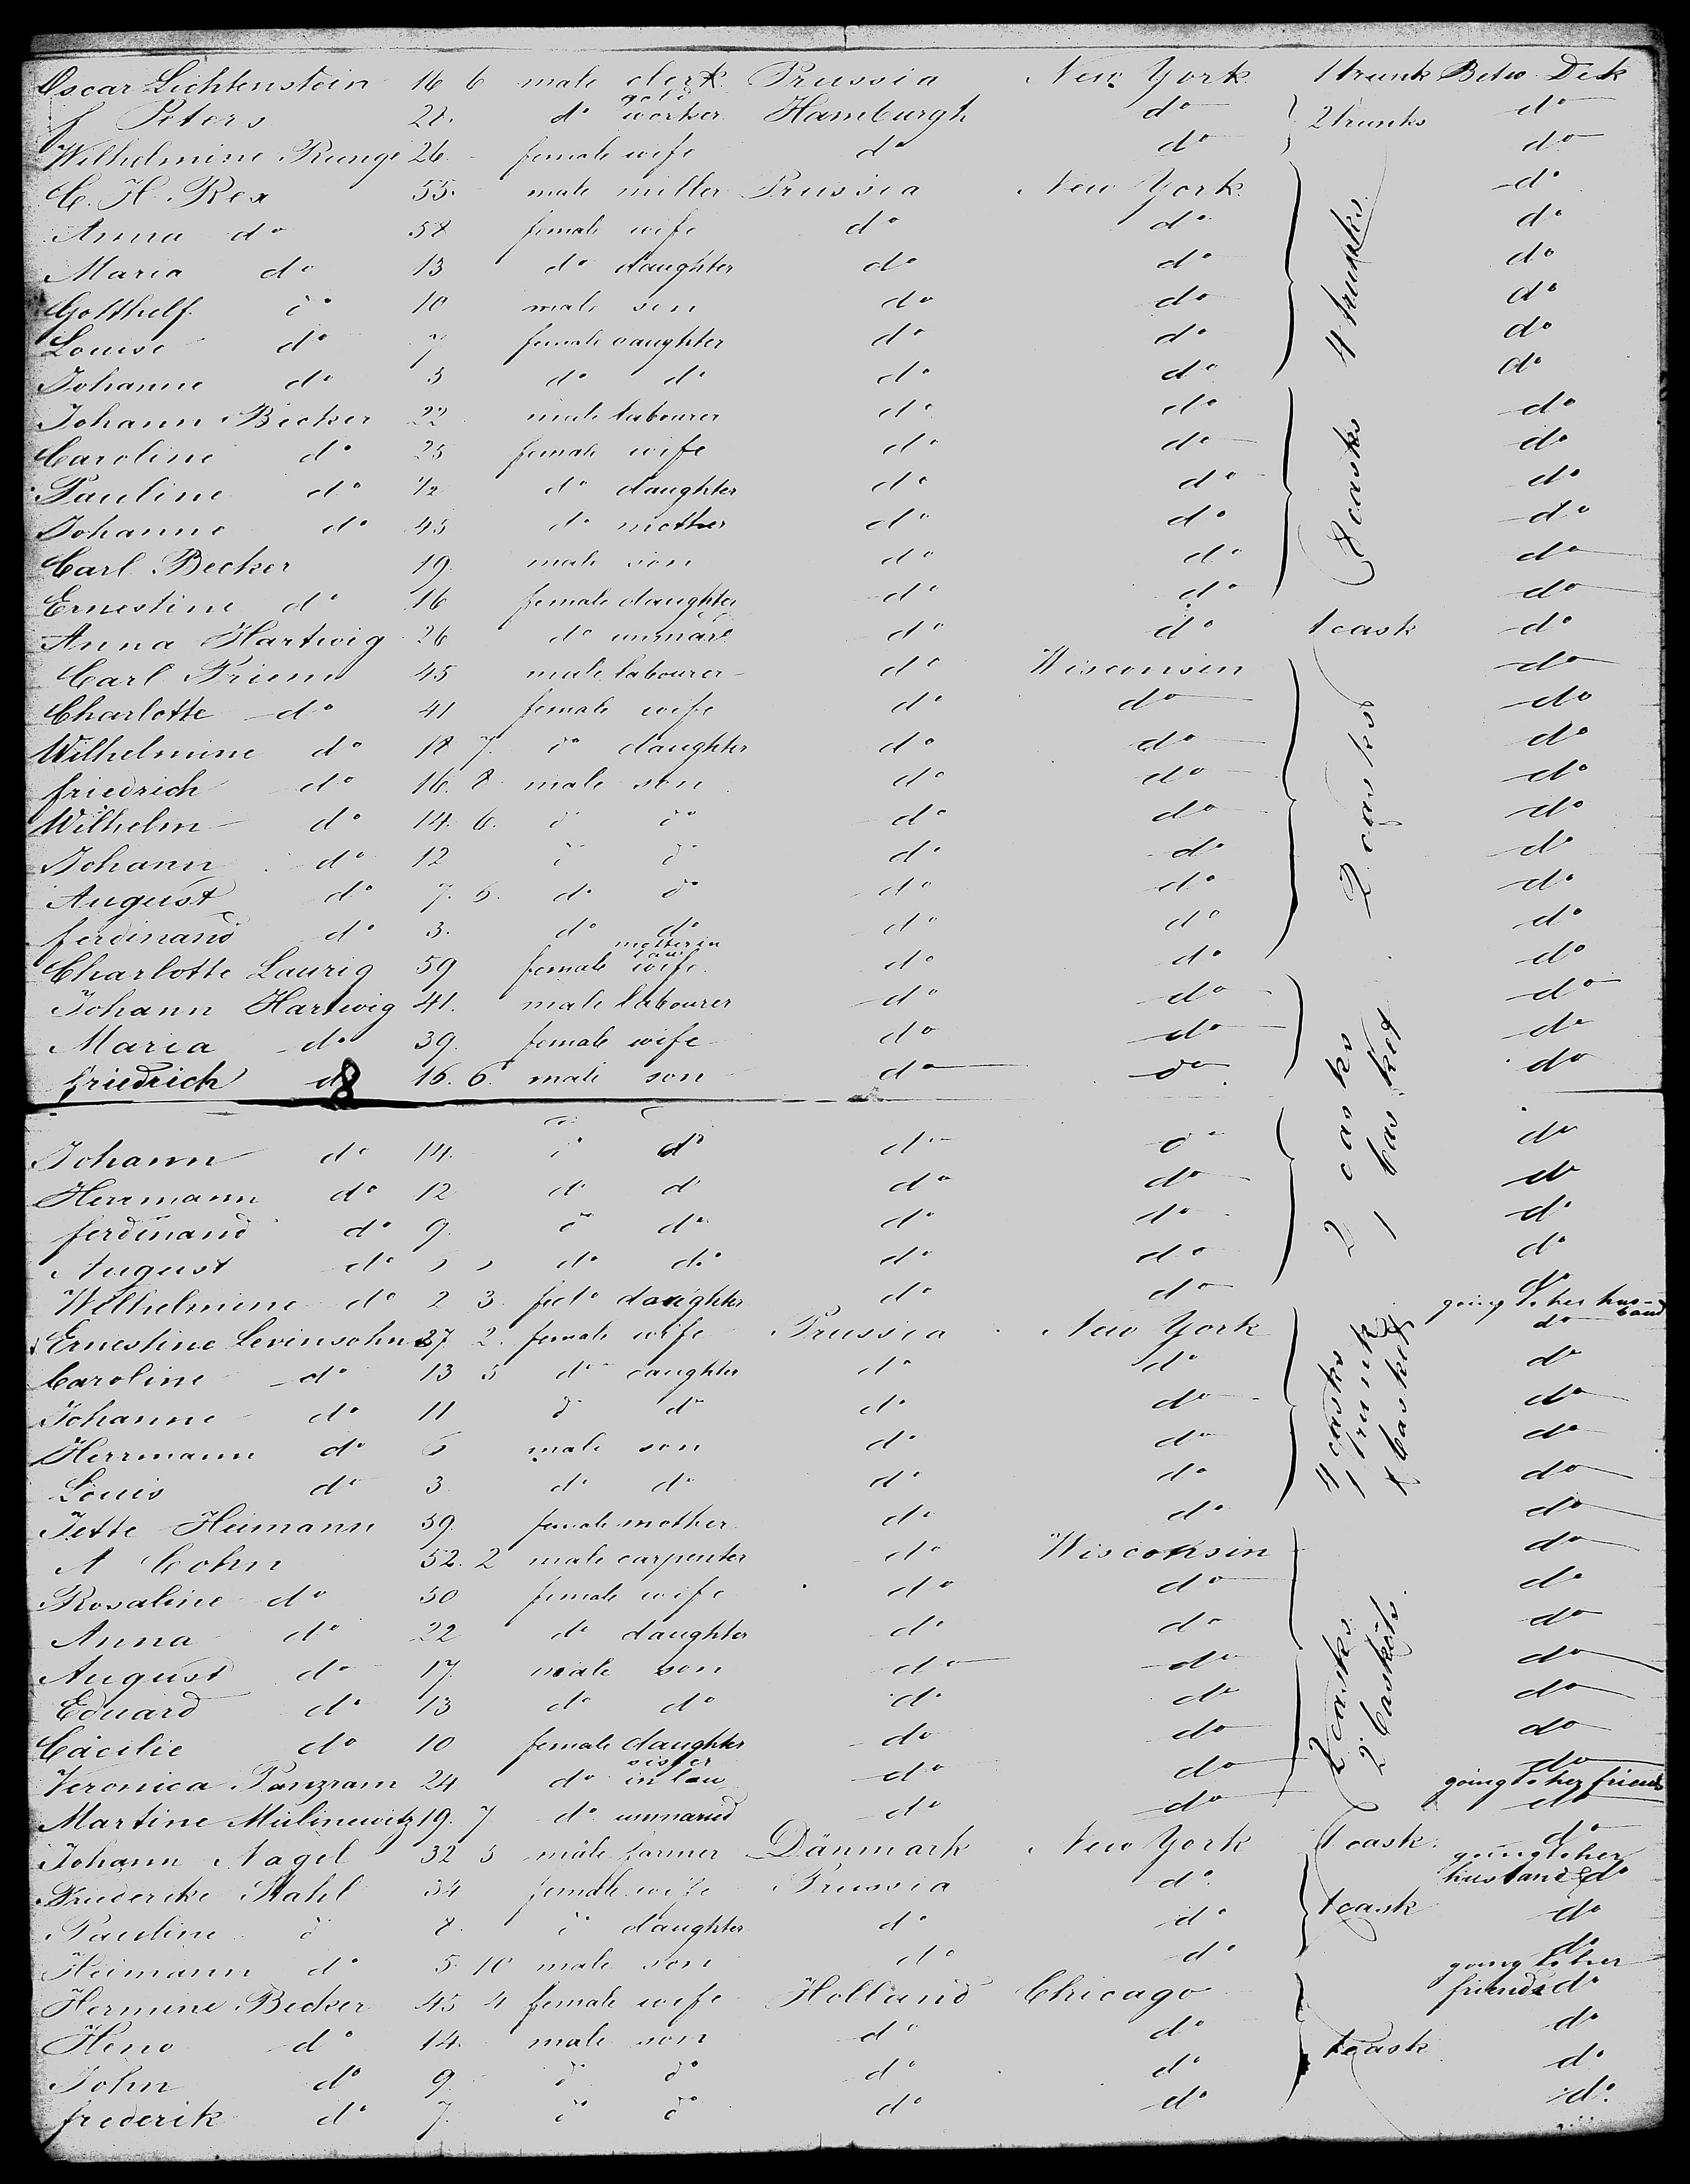 Oscar Lichtenstein 16 6 male clerk Prussia New York 1 trunk Betw. Deck
f Peters 28. do gold worker Hamburgh do 2 trunks do
Wilhelmine Runge 26. female wife do do do
C. H. Rex 55. male miller Prussia New York do
Anna do 58 female wife do do 4 trunks do
Maria do 13 do daughter do do do
Gotthelf. do 10 male son do do do
Louise do 7 female daughter do do do
Johanne do 3 do do do do do
Johann Becker 22 male labourer do do do
Caroline do 25 female wife do do 8 casks do
Pauline do 1/2 do daughter do do do
Johanne do 45 do mother do do do
Carl Becker 19. male son do do do
Ernestine do 16 female daughter do do do
Anna Hartwig 26 do unmard do do 1 cask do
Carl Priem 45 male labourer do Wisconsin do
Charlotte do 41 female wife do do do
Wilhelmine do 18 7. do daughter do do do
friedrich do 16. 8 male son do do 2 casks do
Wilhelm do 14. 6. do do do do do
Johann do 12 do do do do do
August do 7. 6. do do do do do
ferdinand do 3. do do do do do
Charlotte Laurig 59 female mother in law wife. do do do
Johann Hartwig 41. male labourer do do do
Maria do 39. female wife do do do
friedrich do 16. 6. male son do do do
8
Johann do 14. do do do do 2 casks 1 basket do
Herrmann do 12 do do do do do
ferdinand do 9. do do do do do
August do do do do do do
Wilhelmine do 2 3 fe do daughter do do do
going to her husband
Ernestine Levinsohn 37 2. female wife Prussia New York do
Caroline do 13 5 do daughter do do do
Johanne do 11 do do do do 4 casks 1 trunk 1 basket do
Herrmann do 6 male son do do do
Louis do 3. do do do do do
Jette Heimann 59. female mother do do do
A Cohn 52. 2 male carpenter do Wisconsin do
Rosaline do 50 female wife do do do
Anna do 22 do daughter do do do
August do 17 male son do do 2 casks 2 baskets. do
Eduard do 13 do do do do do
Cäcilie do 10 female daughter do do do
Veronica Panzram 24 do sister in law do do do
going to her friends
Martine Mülinewitz 19. 7 do unmarried do do do
Johann Nagel 32 5 male farmer Dänmark New York 1 cask. do
going to her husband
Friederike Stahl 34 female wife Prussia do do
Pauline do 8. do daughter do do 1 cask do
Heimann do 5 10 male son do do do
going to her friends
Hermine Becker 45 4 female wife Holland Chicago do
Heno do 14. male son do do 1 cask do
John do 9 do do do do do
frederik do 7. do do do do do